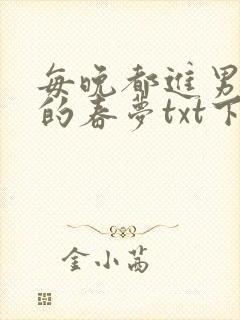 每晚都进男
的春梦txt下
金小茜